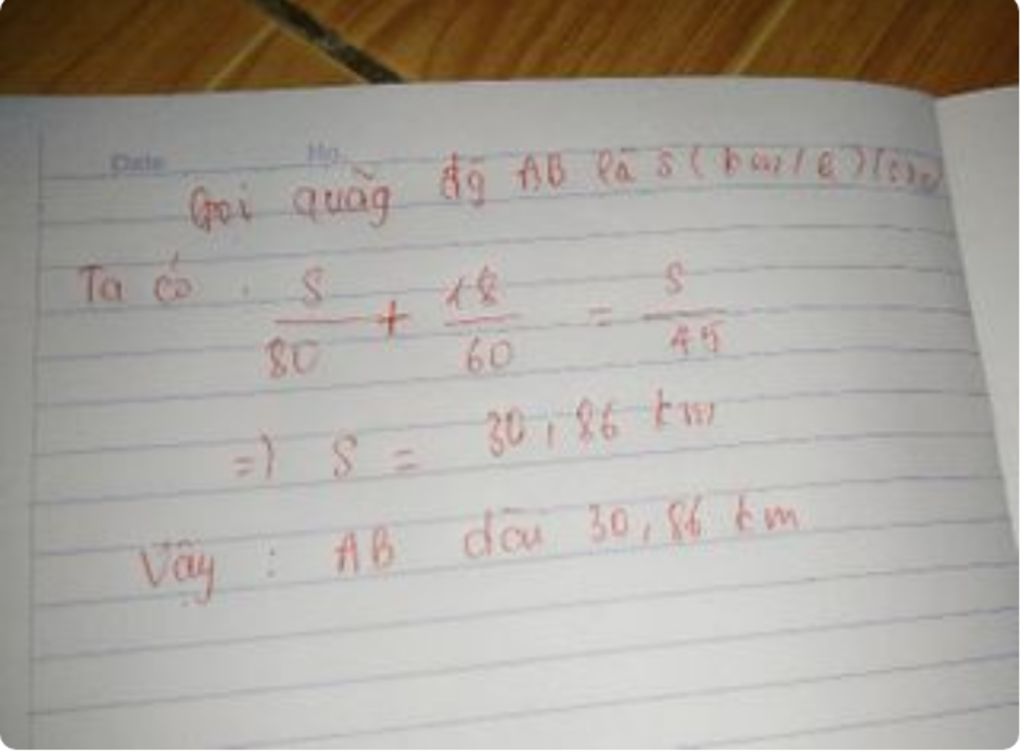 Date No.
Gọi quãg đg AB là s (km/h)
Ta có : S/80 + 18/60 = S/45
=) S = 30,86 km
Vậy : AB dài 30,86 km